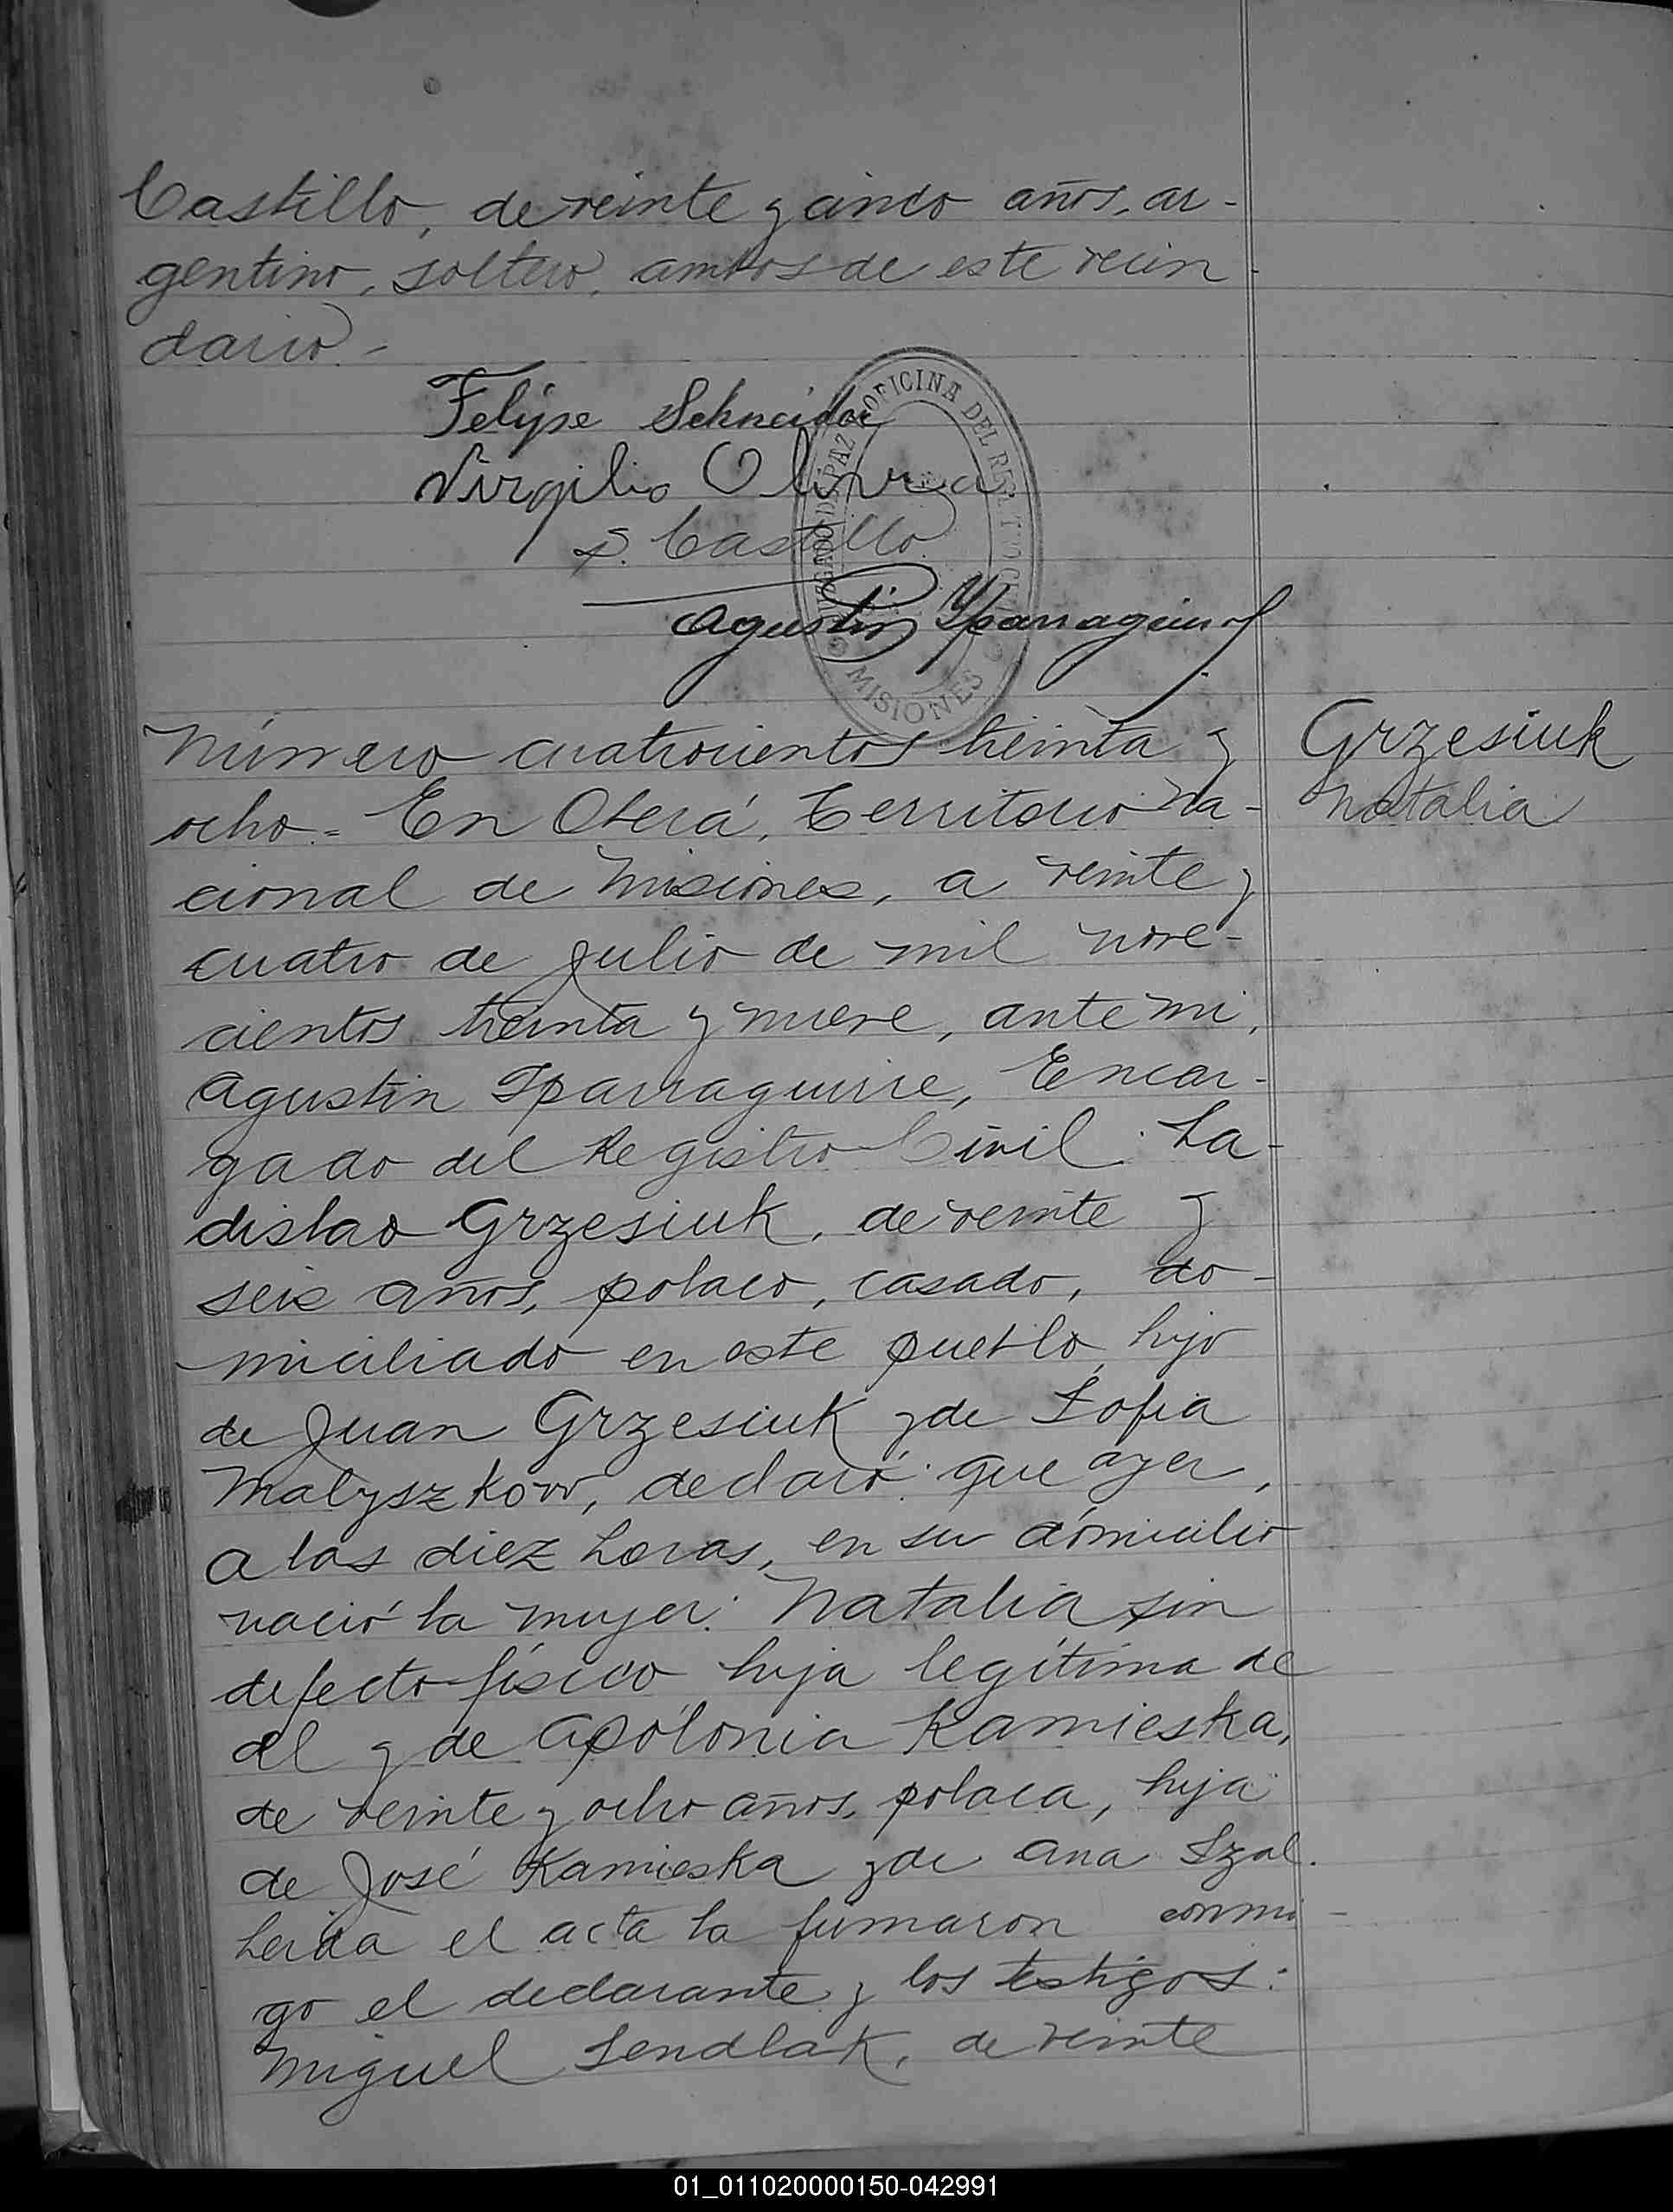 Castillo, de veinte y cinco años, ar-
gentino, soltero, ambos de este vecin-
dario.-
Felipe Schneider
Virgilio Olivera
S. Castillo
Agustin Yparraguirre
JUZGADO DE PAZ Y OFICINA DEL REGISTRO CIVIL
MISIONES
Número cuatrocientos treinta y
ocho = En Oberá, Territorio Na-
cional de Misiones, a veinte y
cuatro de Julio de mil nove-
cientos treinta y nueve, ante mi,
Agustin Iparraguirre, Encar-
gado del Registro Civil: La-
dislao Grzesiuk, de veinte y
seis años, polaco, casado, do-
miciliado en este pueblo, hijo
de Juan Grzesiuk y de Sofia
Malyszkow, declaró: que ayer,
a las diez horas, en su domicilio
nació la mujer: Natalia sin
defecto físico hija legítima de
el y de Apolonia Kamieska,
de veinte y ocho años, polaca, hija
de José Kamieska y de Ana Szal.
Leida el acta la firmaron conmi-
go el declarante y los testigos:
Miguel Sendlak, de veinte
Grzesiuk
Natalia
01_011020000150-042991